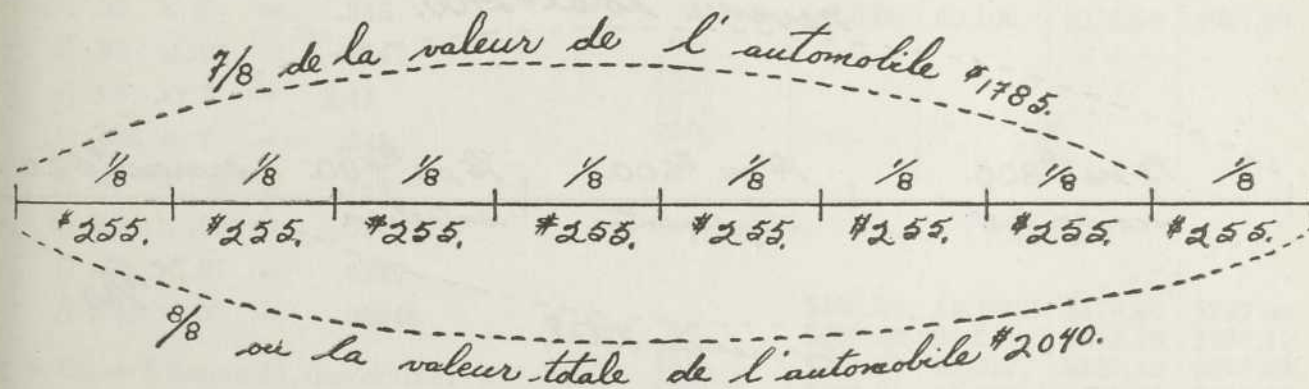 7/8 de la valeur de l'automobile $1785.
1/8 1/8 1/8 1/8 1/8 1/8 1/8 1/8
$255. $255. $255. $255. $255. $255. $255. $255.
8/8 ou la valeur totale de l'automobile $2040.